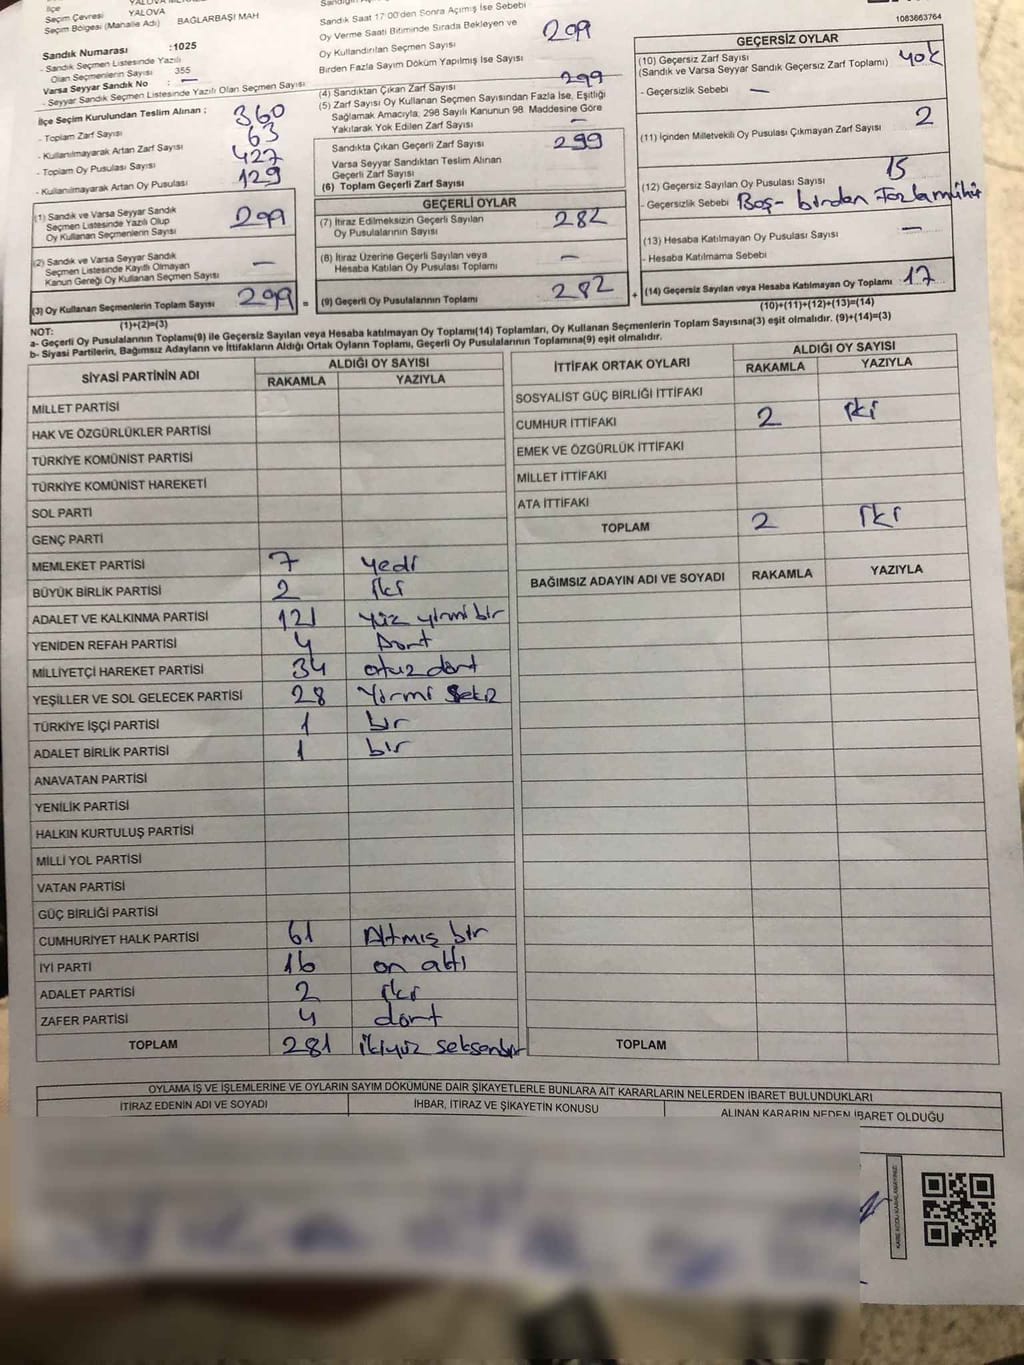 İlçe
Seçim Çevresi YALOVA
Seçim Bölgesi (Mahalle Adı) BAĞLARBAŞI MAH
Sandık Numarası :1025
- Sandık Seçmen Listesinde Yazılı
Olan Seçmenlerin Sayısı 355
Varsa Seyyar Sandık No : —
- Seyyar Sandık Seçmen Listesinde Yazılı Olan Seçmen Sayısı
İlçe Seçim Kurulundan Teslim Alınan ;
- Toplam Zarf Sayısı 360
- Kullanılmayarak Artan Zarf Sayısı 63
- Toplam Oy Pusulası Sayısı 427
- Kullanılmayarak Artan Oy Pusulası 129
(1) Sandık ve Varsa Seyyar Sandık
Seçmen Listesinde Yazılı Olup
Oy Kullanan Seçmenlerin Sayısı 299
(2) Sandık ve Varsa Seyyar Sandık
Seçmen Listesinde Kayıtlı Olmayan
Kanun Gereği Oy Kullanan Seçmen Sayısı —
(3) Oy Kullanan Seçmenlerin Toplam Sayısı 299
(1)+(2)=(3)
Sandık Saat 17:00'den Sonra Açımış İse Sebebi
Oy Verme Saati Bitiminde Sırada Bekleyen ve
Oy Kullandırılan Seçmen Sayısı 299
Birden Fazla Sayım Döküm Yapılmış İse Sayısı
(4) Sandıktan Çıkan Zarf Sayısı 299
(5) Zarf Sayısı Oy Kullanan Seçmen Sayısından Fazla İse, Eşitliği
Sağlamak Amacıyla; 298 Sayılı Kanunun 98. Maddesine Göre
Yakılarak Yok Edilen Zarf Sayısı —
Sandıkta Çıkan Geçerli Zarf Sayısı 299
Varsa Seyyar Sandıktan Teslim Alınan
Geçerli Zarf Sayısı
(6) Toplam Geçerli Zarf Sayısı
GEÇERLİ OYLAR
(7) İtiraz Edilmeksizin Geçerli Sayılan
Oy Pusulalarının Sayısı 282
(8) İtiraz Üzerine Geçerli Sayılan veya
Hesaba Katılan Oy Pusulası Toplamı —
= (9) Geçerli Oy Pusulalarının Toplamı 282
1083663764
GEÇERSİZ OYLAR
(10) Geçersiz Zarf Sayısı
(Sandık ve Varsa Seyyar Sandık Geçersiz Zarf Toplamı) yok
- Geçersizlik Sebebi —
(11) İçinden Milletvekili Oy Pusulası Çıkmayan Zarf Sayısı 2
(12) Geçersiz Sayılan Oy Pusulası Sayısı 15
- Geçersizlik Sebebi Boş- birden Fazla mühür
(13) Hesaba Katılmayan Oy Pusulası Sayısı —
- Hesaba Katılmama Sebebi
+ (14) Geçersiz Sayılan veya Hesaba Katılmayan Oy Toplamı 17
(10)+(11)+(12)+(13)=(14)
NOT:
a- Geçerli Oy Pusulalarının Toplamı(9) ile Geçersiz Sayılan veya Hesaba katılmayan Oy Toplamı(14) Toplamları, Oy Kullanan Seçmenlerin Toplam Sayısına(3) eşit olmalıdır. (9)+(14)=(3)
b- Siyasi Partilerin, Bağımsız Adayların ve İttifakların Aldığı Ortak Oyların Toplamı, Geçerli Oy Pusulalarının Toplamına(9) eşit olmalıdır.
SİYASİ PARTİNİN ADI ALDIĞI OY SAYISI
RAKAMLA YAZIYLA
MİLLET PARTİSİ
HAK VE ÖZGÜRLÜKLER PARTİSİ
TÜRKİYE KOMÜNİST PARTİSİ
TÜRKİYE KOMÜNİST HAREKETİ
SOL PARTİ
GENÇ PARTİ
MEMLEKET PARTİSİ 7 yedi
BÜYÜK BİRLİK PARTİSİ 2 iki
ADALET VE KALKINMA PARTİSİ 121 yüz yirmi bir
YENİDEN REFAH PARTİSİ 4 Dört
MİLLİYETÇİ HAREKET PARTİSİ 34 otuz dört
YEŞİLLER VE SOL GELECEK PARTİSİ 28 Yirmi Sekiz
TÜRKİYE İŞÇİ PARTİSİ 1 bir
ADALET BİRLİK PARTİSİ 1 bir
ANAVATAN PARTİSİ
YENİLİK PARTİSİ
HALKIN KURTULUŞ PARTİSİ
MİLLİ YOL PARTİSİ
VATAN PARTİSİ
GÜÇ BİRLİĞİ PARTİSİ
CUMHURİYET HALK PARTİSİ 61 Altmış bir
İYİ PARTİ 16 on altı
ADALET PARTİSİ 2 iki
ZAFER PARTİSİ 4 dört
TOPLAM 281 ikiyüz seksenbir
İTTİFAK ORTAK OYLARI ALDIĞI OY SAYISI
RAKAMLA YAZIYLA
SOSYALİST GÜÇ BİRLİĞİ İTTİFAKI
CUMHUR İTTİFAKI 2 iki
EMEK VE ÖZGÜRLÜK İTTİFAKI
MİLLET İTTİFAKI
ATA İTTİFAKI
TOPLAM 2 iki
BAĞIMSIZ ADAYIN ADI VE SOYADI RAKAMLA YAZIYLA
TOPLAM
OYLAMA İŞ VE İŞLEMLERİNE VE OYLARIN SAYIM DÖKÜMÜNE DAİR ŞİKAYETLERLE BUNLARA AİT KARARLARIN NELERDEN İBARET BULUNDUKLARI
İTİRAZ EDENİN ADI VE SOYADI İHBAR, İTİRAZ VE ŞİKAYETİN KONUSU ALINAN KARARIN NEDEN İBARET OLDUĞU